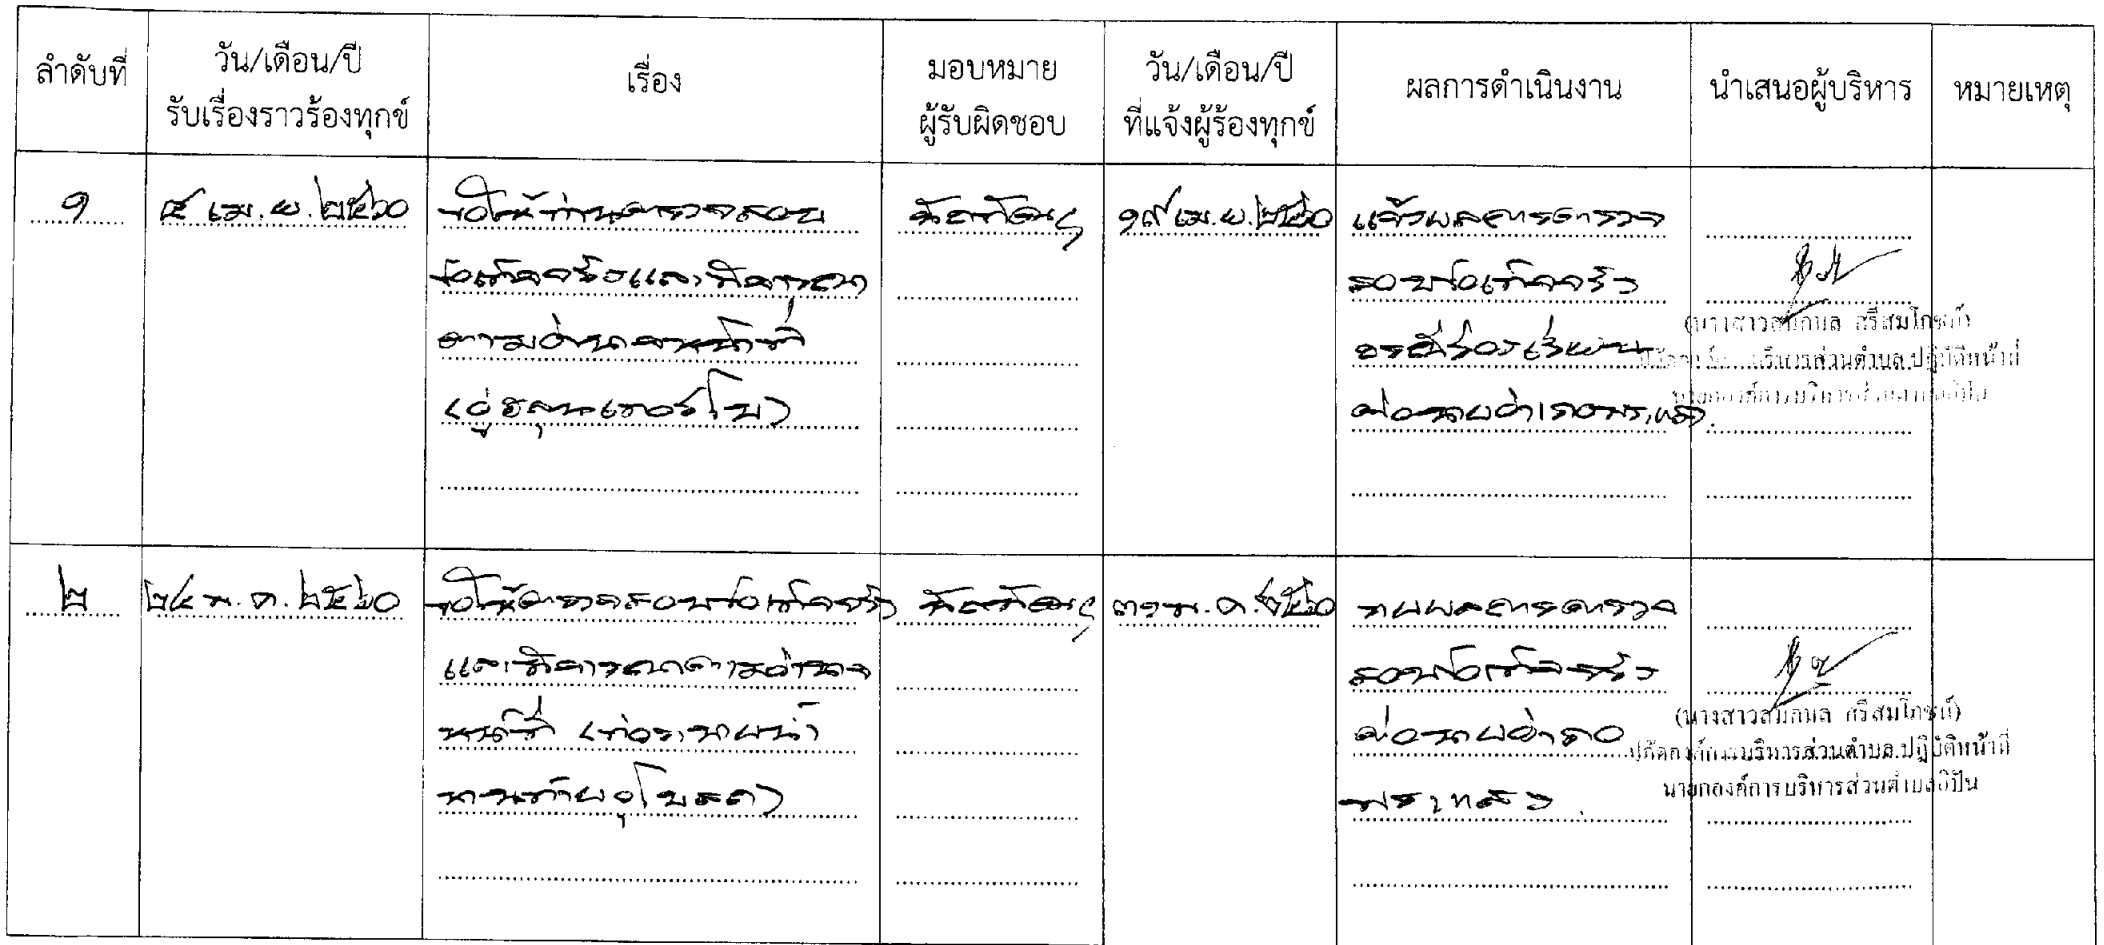 ลำดับที่
วัน/เดือน/ปี
รับเรื่องราวร้องทุกข์
เรื่อง
มอบหมาย
ผู้รับผิดชอบ
วัน/เดือน/ปี
ที่แจ้งผู้ร้องทุกข์
ผลการดำเนินงาน
นำเสนอผู้บริหาร
หมายเหตุ
๑
๕ เม.ย. ๒๕๖๐
ขอให้ท่านตรวจสอบ
ข้อเท็จจริงและพิจารณา
ตามอำนาจหน้าที่
๑๙ เม.ย. ๒๕๖๐
แจ้งผลการตรวจ
สอบข้อเท็จจริง
กรณีร้องเรียน
ต่อนายอำเภอพระแสง.
(นางสาวสมกมล ศรีสมโภชน์)
ปลัดองค์การบริหารส่วนตำบล ปฏิบัติหน้าที่
นายกองค์การบริหารส่วนตำบลอิปัน
๒
๒๔ พ.ค. ๒๕๖๐
ขอให้ตรวจสอบข้อเท็จจริง
และพิจารณาตามอำนาจ
หน้าที่ (ท่อระบายน้ำ
๓๑ พ.ค. ๒๕๖๐
รายงานผลการตรวจ
สอบข้อเท็จจริง
ต่อนายอำเภอ
พระแสง.
(นางสาวสมกมล ศรีสมโภชน์)
ปลัดองค์การบริหารส่วนตำบล ปฏิบัติหน้าที่
นายกองค์การบริหารส่วนตำบลอิปัน